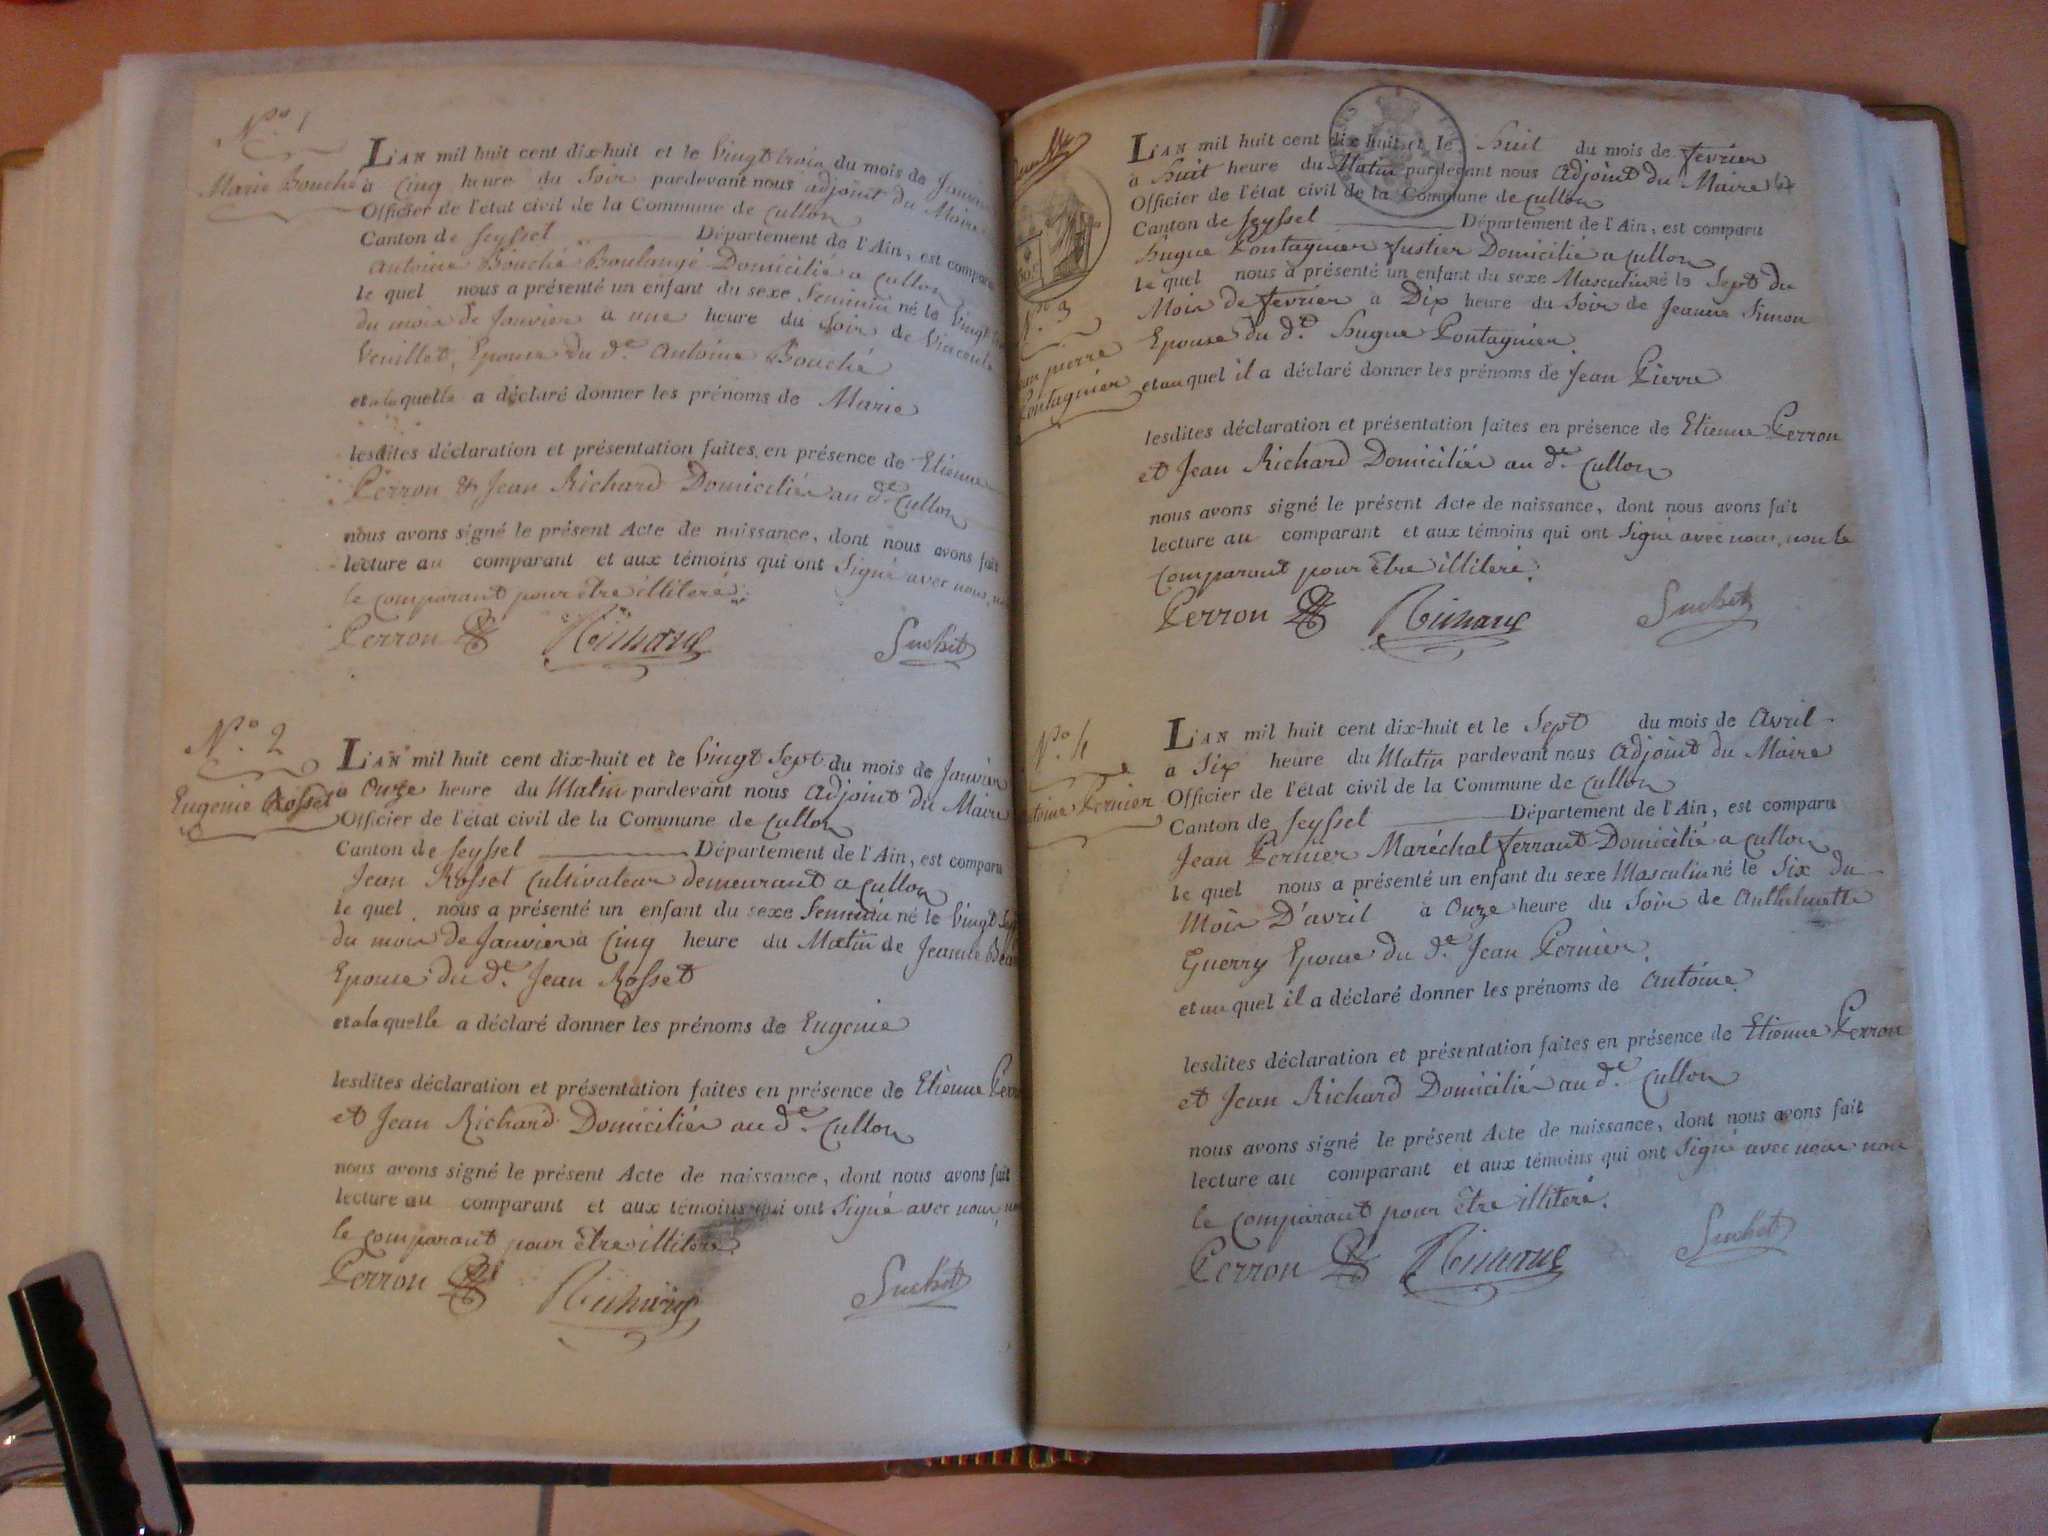 N.º 1
Marie Bouché
L'AN mil huit cent dix-huit et le Vingt trois du mois de Janvier
à Cinq heure du Soir pardevant nous adjoint du Maire
Officier de l'état civil de la Commune de Cullon
Canton de Seyssel Département de l'Ain, est comparu
antoine Bouché Boulangé Domicilié a Cullon
le quel nous a présenté un enfant du sexe Feminin né le Vingt
du mois de Janvier a une heure du Soir de
Vouillet, Epouse du d.e Antoine Bouché
et a la quelle a déclaré donner les prénoms de Marie
lesdites déclaration et présentation faites en présence de Etienne
Perron & Jean Richard Domiciliés au d.e Cullon
nous avons signé le présent Acte de naissance, dont nous avons fait
lecture au comparant et aux témoins qui ont Signé avec nous,
le comparant pour être illiteré.
Perron Richard Suchet
N.º 2
Eugenie Rosset
L'AN mil huit cent dix-huit et le Vingt Sept du mois de Janvier
à Onze heure du Matin pardevant nous Adjoint du Maire
Officier de l'état civil de la Commune de Cullon
Canton de Seyssel Département de l'Ain, est comparu
Jean Rosset Cultivateur demeurant a Cullon
le quel nous a présenté un enfant du sexe Feminin né le Vingt Sept
du mois de Janvier à Cinq heure du Matin de Jeanne
Epouse du d.e Jean Rosset
et a la quelle a déclaré donner les prénoms de Eugenie
lesdites déclaration et présentation faites en présence de Etienne Perron
et Jean Richard Domiciliés au d.e Cullon
nous avons signé le présent Acte de naissance, dont nous avons fait
lecture au comparant et aux témoins qui ont Signé avec nous,
le comparant pour être illiteré.
Perron Richard Suchet
N.º 3
pierre
Pontagnier
L'AN mil huit cent dix-huit et le huit du mois de fevrier
à huit heure du Matin pardevant nous Adjoint du Maire
Officier de l'état civil de la Commune de Cullon
Canton de Seyssel Département de l'Ain, est comparu
hugue Pontagnier Justier Domicilié a Cullon
le quel nous a présenté un enfant du sexe Masculin né le Sept du
Mois de fevrier à Dix heure du Soir de Jeanne Simon
Epouse du d.e hugue Pontagnier
et au quel il a déclaré donner les prénoms de Jean Pierre
lesdites déclaration et présentation faites en présence de Etienne Perron
et Jean Richard Domiciliés au d.e Cullon
nous avons signé le présent Acte de naissance, dont nous avons fait
lecture au comparant et aux témoins qui ont Signé avec nous, non le
comparant pour être illiteré.
Perron Richard Suchet
N.º 4
Antoine Pernier
L'AN mil huit cent dix-huit et le Sept du mois de Avril
à Six heure du Matin pardevant nous Adjoint du Maire
Officier de l'état civil de la Commune de Cullon
Canton de Seyssel Département de l'Ain, est comparu
Jean Pernier Maréchal ferrant Domicilié a Cullon
le quel nous a présenté un enfant du sexe Masculin né le Six du
Mois D'avril à Onze heure du Soir de Anthelmette
Guerry Epouse du d.e Jean Pernier.
et au quel il a déclaré donner les prénoms de Antoine
lesdites déclaration et présentation faites en présence de Etienne Perron
et Jean Richard Domiciliés au d.e Cullon
nous avons signé le présent Acte de naissance, dont nous avons fait
lecture au comparant et aux témoins qui ont Signé avec nous non
le comparant pour être illiteré.
Perron Richard Suchet